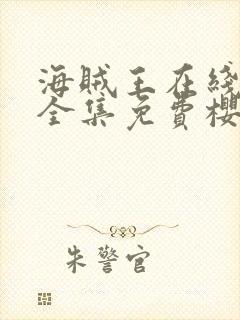 海贼王在线
全集免費櫻
朱警官